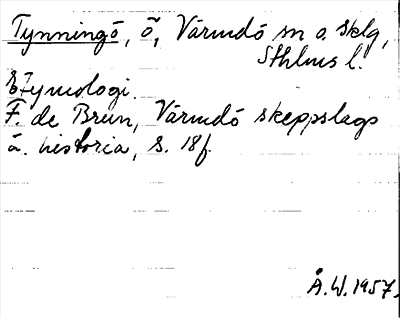 Tynningö, ö, Värmdö sn o. sklg,
Sthlms l.
Etymologi.
F. de Brun, Värmdö skeppslags
ä. historia, s. 18f.
Å.W. 1957.